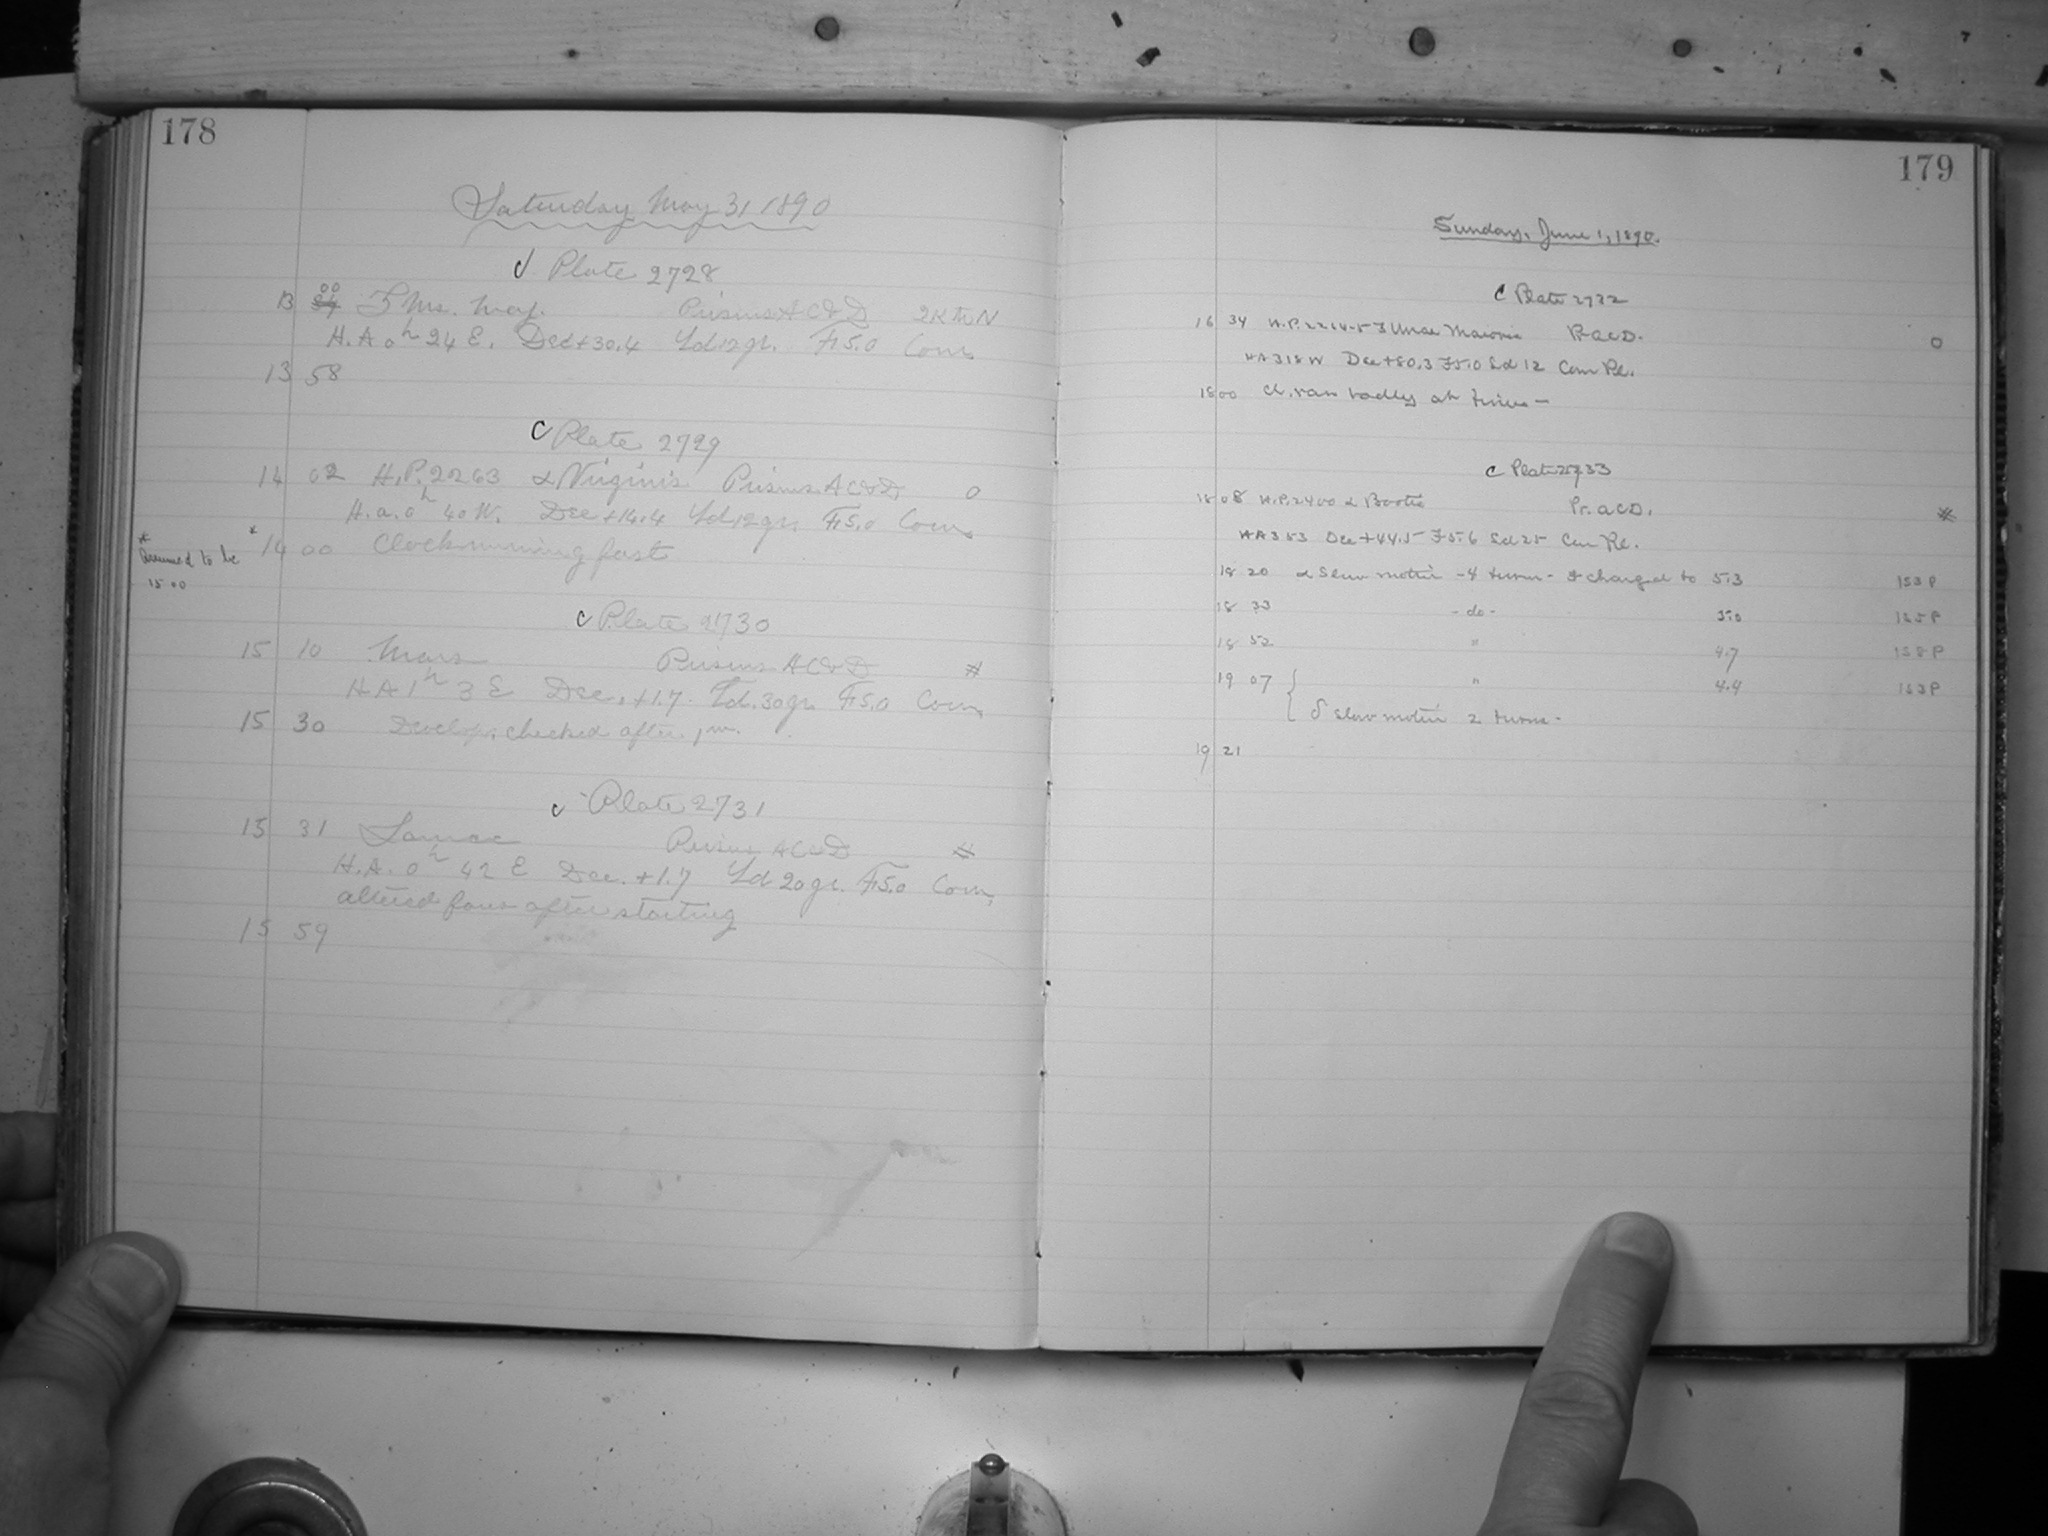 178
Saturday May 31 1890
c Plate 2728
13 00 ζ Urs. Maj. Prisms A C & D 2R th N
H.A. 0h 24 E. Dec +30.4 Sd 12 gr. F 5.0 Com
13 58
c Plate 2729
14 02 H.P. 2263 α Virginis Prisms A C & D 0
H.a. 0h 40 W. Dec +14.4 Sd 12 gr. F 5.0 Com
* 14 00 Clock running fast
* Assumed to be
15 00
c Plate 2730
15 10 Mars Prisms A C & D #
H A 1h 3 E Dec. +1.7 Sd. 30 gr. F 5.0 Com
15 30 Develop. checked after 1m.
c Plate 2731
15 31 Same Prisms A C & D #
H.A. 0h 42 E Dec. +1.7 Sd 20 gr. F 5.0 Com,
altered focus after starting
15 59
179
Sunday, June 1, 1890.
c Plate 2732
16 34 H.P. 2264-5 ζ Ursae Majoris Pr A C D. 0
HA 3 18 W Dec +80.3 F 5.0 Sd 12 Com Pl.
18 00 Cl. ran badly at times -
c Plate 2733
18 08 H.P. 2400 α Bootis Pr. A C D. #
HA 3 53 Dec +44.5 F 5.6 Sd 25 Com Pl.
18 20 α Slow motion - 4 turns - & changed to 5.3 153 P
18 33 - do - 5.0
18 52 " 4.7 158 P
19 07 { " 4.4 153 P
δ slow motion 2 turns -
19 21